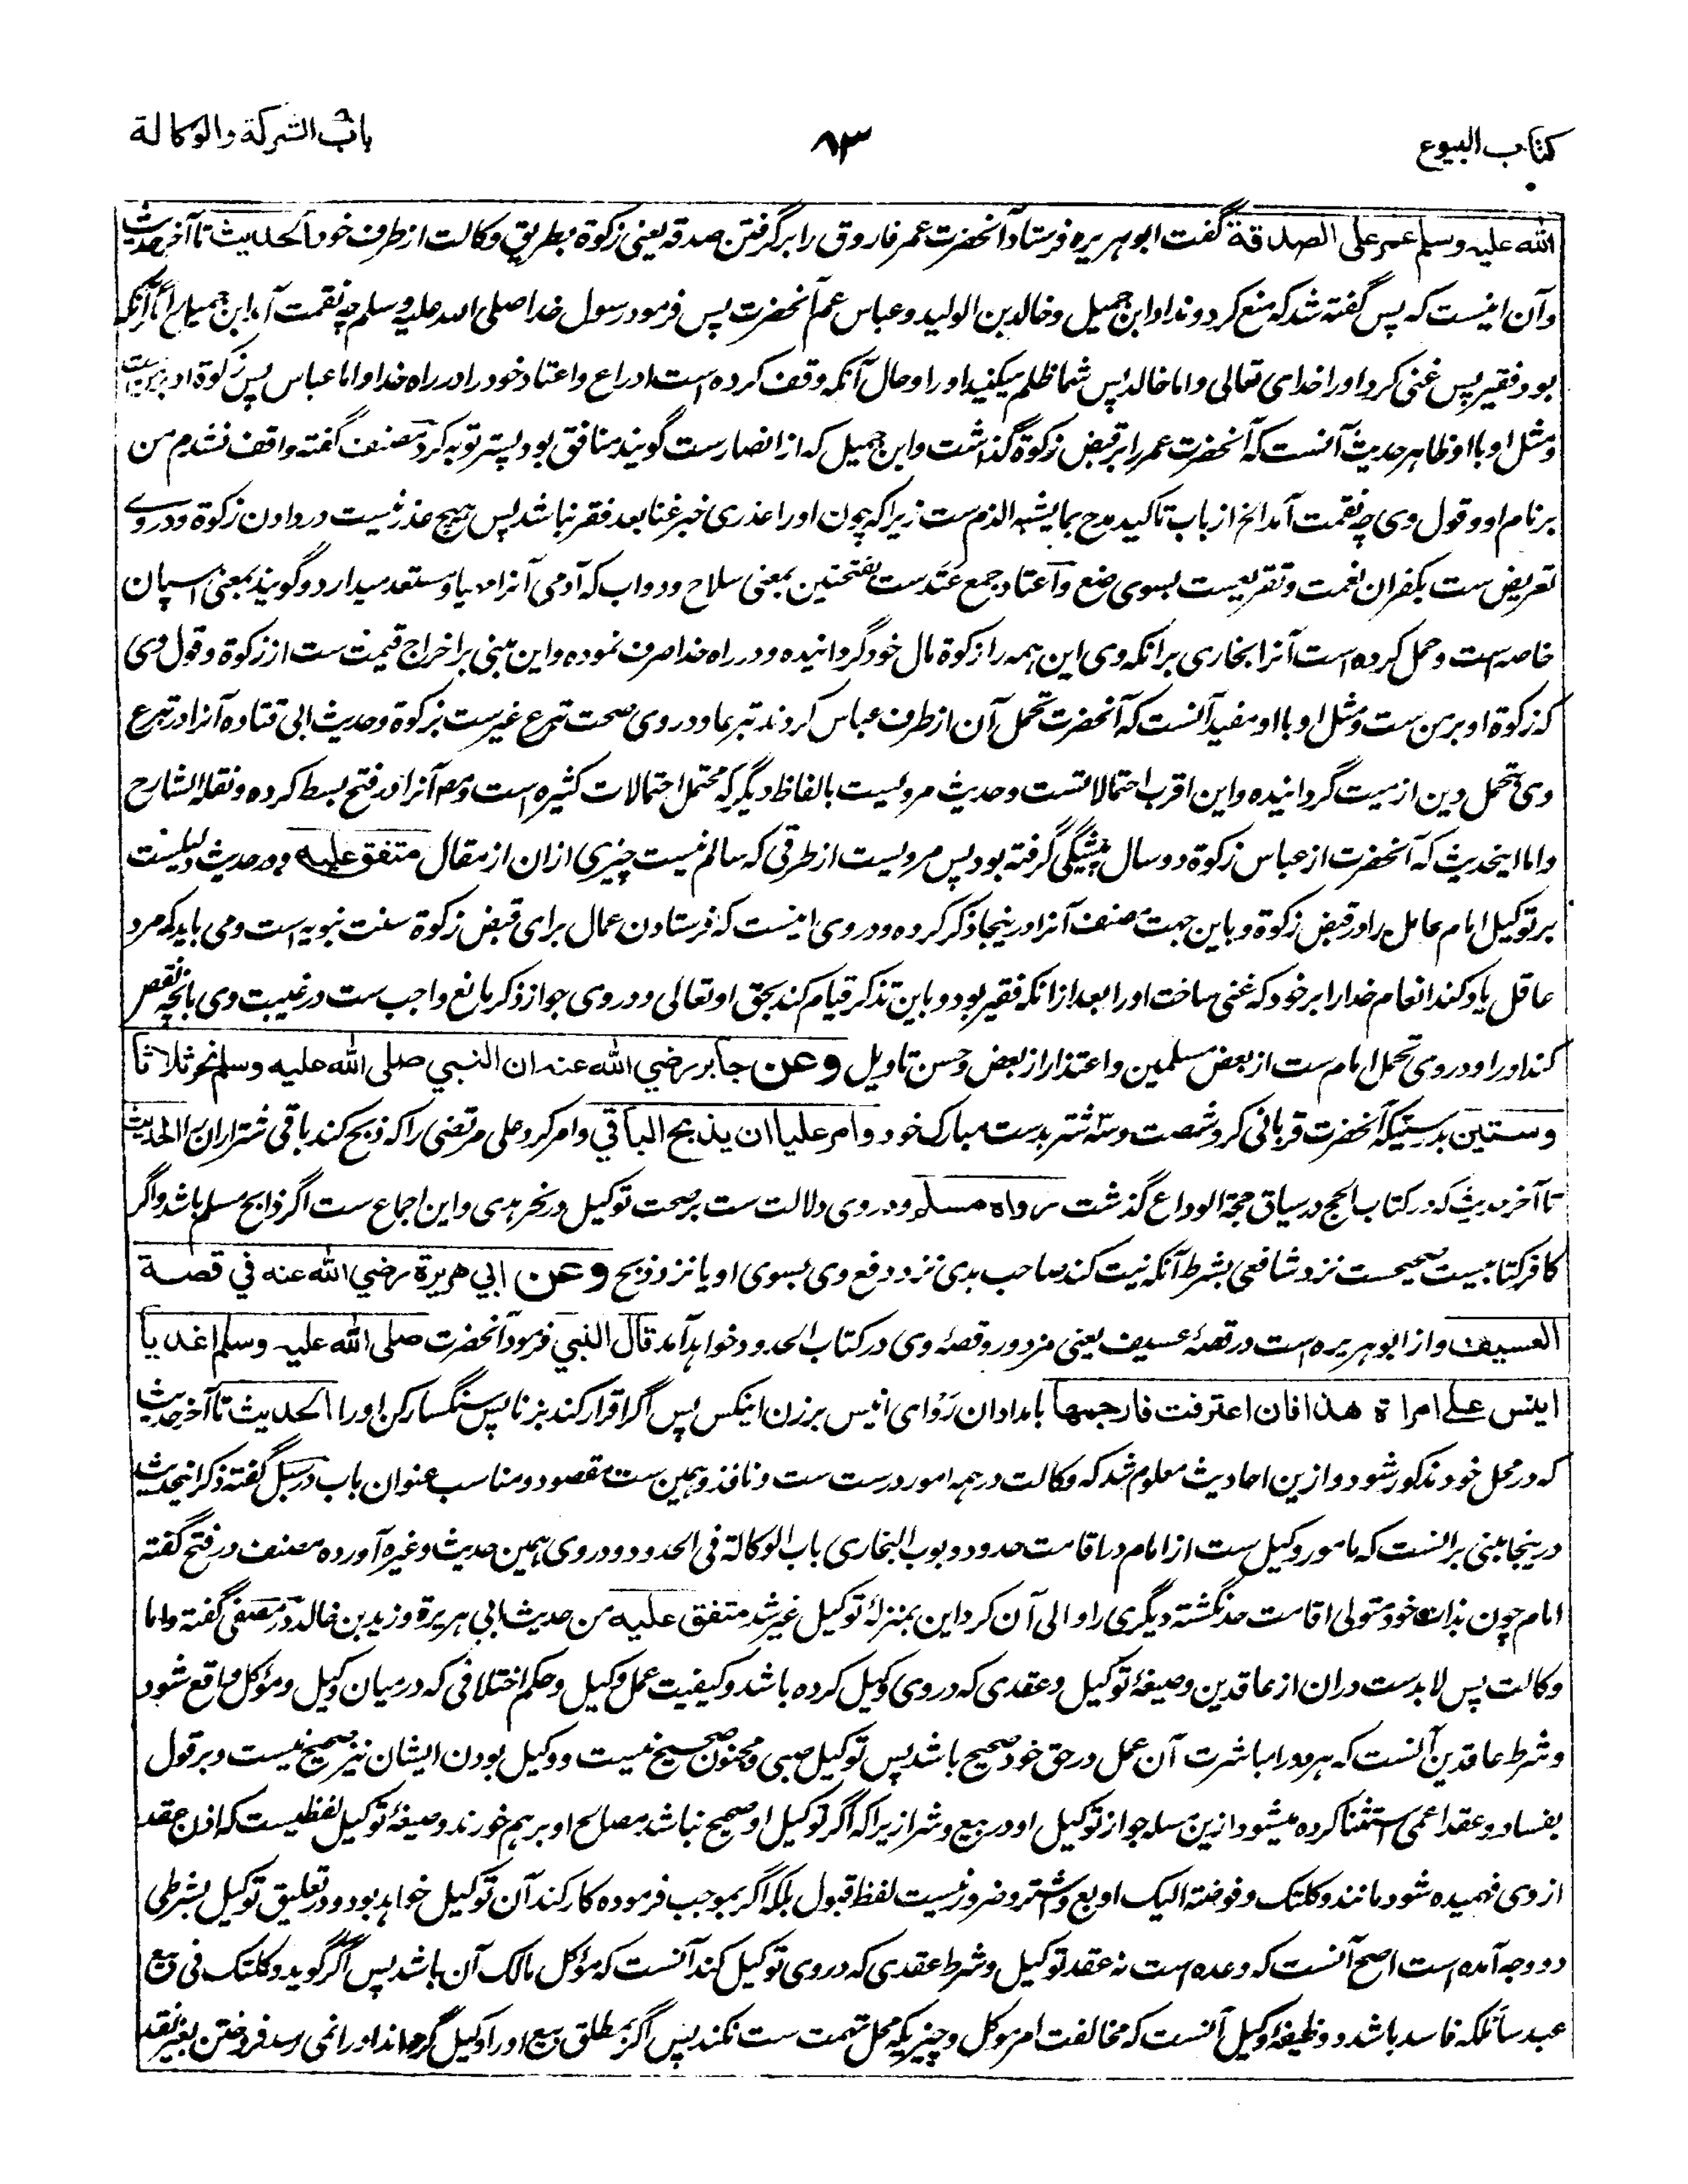 کتاب البیوع
۸۳
باب الشرکة والوکالة
الله علیه وسلم عمر علی الصدقة گفت ابو هریره فرستاد آنحضرت عمر فاروق را بر گرفتن صدقه یعنی زکوة بطریق وکالت از طرف خود الحدیث تا آخر حدیث
وآن اینست که پس گفته شد که منع کرد و نداد ابن جمیل وخالد بن الولید وعباس عم آنحضرت پس فرمود رسول خدا صلی الله علیه وسلم چه نقمت آمد ابن جمیل را مگر آنکه
بود فقیر پس غنی کرد او را خدای تعالی واما خالد پس شما ظلم میکنید او را وحال آنکه وقف کرده است ادراع واعتاد خود را در راه خدا واما عباس پس زکوة او بر من ست
ومثل او با او ظاهر حدیث آنست که آنحضرت عمر را بر قبض زکوة گذاشت وابن جمیل که از انصارست گویند منافق بود پستر توبه کرد مصنف گفته واقف نشدم من
بر نام او وقول وی چه نقمت آمد الخ از باب تاکید مدح بما یشبه الذم ست زیرا که چون او را عذری جز غنا بعد فقر نباشد پس هیچ عذر نیست در دادن زکوة ودروے
تعریض ست بکفران نعمت وتقریعیست بسوی صنع واعتاد جمع عَتَدست بفتحتین بمعنی سلاح ودواب که آدمی آنرا مهیا ومستعد میدارد وگویند بمعنی اسپان
خاصه است وحمل کرده است آنرا بخاری برانکه وی این همه را زکوة مال خود گردانیده ودر راه خدا صرف نموده واین مبنی بر اخراج قیمت ست از زکوة وقول وی
که زکوة او بر من ست ومثل او با او مفید آنست که آنحضرت تحمل آن از طرف عباس کردند تبرعا ودروی صحت تبرع غیرست بزکوة وحدیث ابی قتاده آنرا در تبرع
وی بتحمل دین از میت گردانیده واین اقرب احتمالاتست وحدیث مرویست بالفاظ دیگر که محتمل احتمالات کثیره است ومصنف آنرا در فتح بسط کرده ونقله الشارح
واما این حدیث که آنحضرت از عباس زکوة دو سال پیشگی گرفته بود پس مرویست از طرقی که سالم نیست چیزی ازان از مقال متفق علیه ودر حدیث دلیلست
بر توکیل امام عامل را در قبض زکوة وباین جهت مصنف آنرا درینجا ذکر کرده ودروی اینست که فرستادن عمال برای قبض زکوة سنت نبویه است ومی باید که مرد
عاقل یاد کند انعام خدا را بر خود که غنی ساخت او را بعد از آنکه فقیر بود وباین تذکر قیام کند بحق او تعالی ودروی جواز ذکر مانع واجب ست در غیبت وی بانچه نقص
کند او را ودروی تحمل امام ست از بعض مسلمین واعتذار از بعض وحسن تاویل وعن جابر رضي الله عنه ان النبي صلی الله علیه وسلم نحر ثلاثا
وستین بدرستیکه آنحضرت قربانی کرد شصت وسه شتر بدست مبارک خود وامر علیا ان یذبح الباقي وامر کرد علی مرتضی را که ذبح کند باقی شتران را الحدیث
تا آخر حدیث که در کتاب الحج در سیاق حجة الوداع گذشت رواه مسلم ودروی دلالت ست بر صحت توکیل در نحر هدی واین اجماع ست اگر ذابح مسلم باشد واگر
کافر کتابیست صحیحست نزد شافعی بشرط آنکه نیت کند صاحب هدی نزد دفع وی بسوی او یا نزد ذبح وعن ابي هریرة رضي الله عنه في قصة
العسیف واز ابو هریره است در قصهٔ عسیف یعنی مزدور وقصهٔ وی در کتاب الحدود خواهد آمد قال النبي فرمود آنحضرت صلی الله علیه وسلم اغد یا
انیس علے امراة هذا فان اعترفت فارجمها بامدادان رَوْ ای انیس بر زن اینکس پس اگر اقرار کند بزنا پس سنگسار کن او را الحدیث تا آخر حدیث
که در محل خود مذکور شود وازین احادیث معلوم شد که وکالت در همه امور درست ست ونافذ وهمین ست مقصود ومناسب عنوان باب در سبل گفته ذکر این حدیث
درینجا مبنی بر آنست که مامور وکیل ست از امام در اقامت حدود وبوب البخاری باب الوکالة فی الحدود ودروی همین حدیث وغیره آورده مصنف در فتح گفته
امام چون بذات خود متولی اقامت حد نگشته دیگری را والی آن کرد این بمنزلهٔ توکیل غیر شد متفق علیه من حدیث ابی هریرة وزید بن خالد در مصفی گفته واما
وکالت پس لابدست دران از عاقدین وصیغهٔ توکیل وعقدی که دروی وکیل کرده باشد وکیفیت عمل وکیل وحکم اختلافی که درمیان وکیل ومؤکل واقع شود
وشرط عاقدین آنست که هر دو را مباشرت آن عمل در حق خود صحیح باشد پس توکیل صبی ومجنون صحیح نیست ووکیل بودن ایشان نیز صحیح نیست وبر قول
بفساد وعقد اعمی استثنا کرده میشود ازین مسله جواز توکیل او در بیع وشرا زیرا که اگر توکیل او صحیح نباشد مصالح او برهم خورند وصیغهٔ توکیل لفظیست که اذن عقد
از وی فهمیده شود مانند وکلتک وفوضته الیک او بع واشتر وضرور نیست لفظ قبول بلکه اگر بموجب فرموده کار کند آن توکیل خواهد بود ودر تعلیق توکیل بشرطی
دو وجه آمده است اصح آنست که وعده است نه عقد توکیل وشرط عقدی که دروی توکیل کند آنست که مؤکل مالک آن باشد پس اگر گوید وکلتک فی بیع
عبد ساملکه فاسد باشد ووظیفهٔ وکیل آنست که مخالفت امر موکل وچیزیکه محل تهمت ست نکند پس اگر بمطلق بیع او را وکیل گرداند او را نمی رسد فروختن بغیر نقد